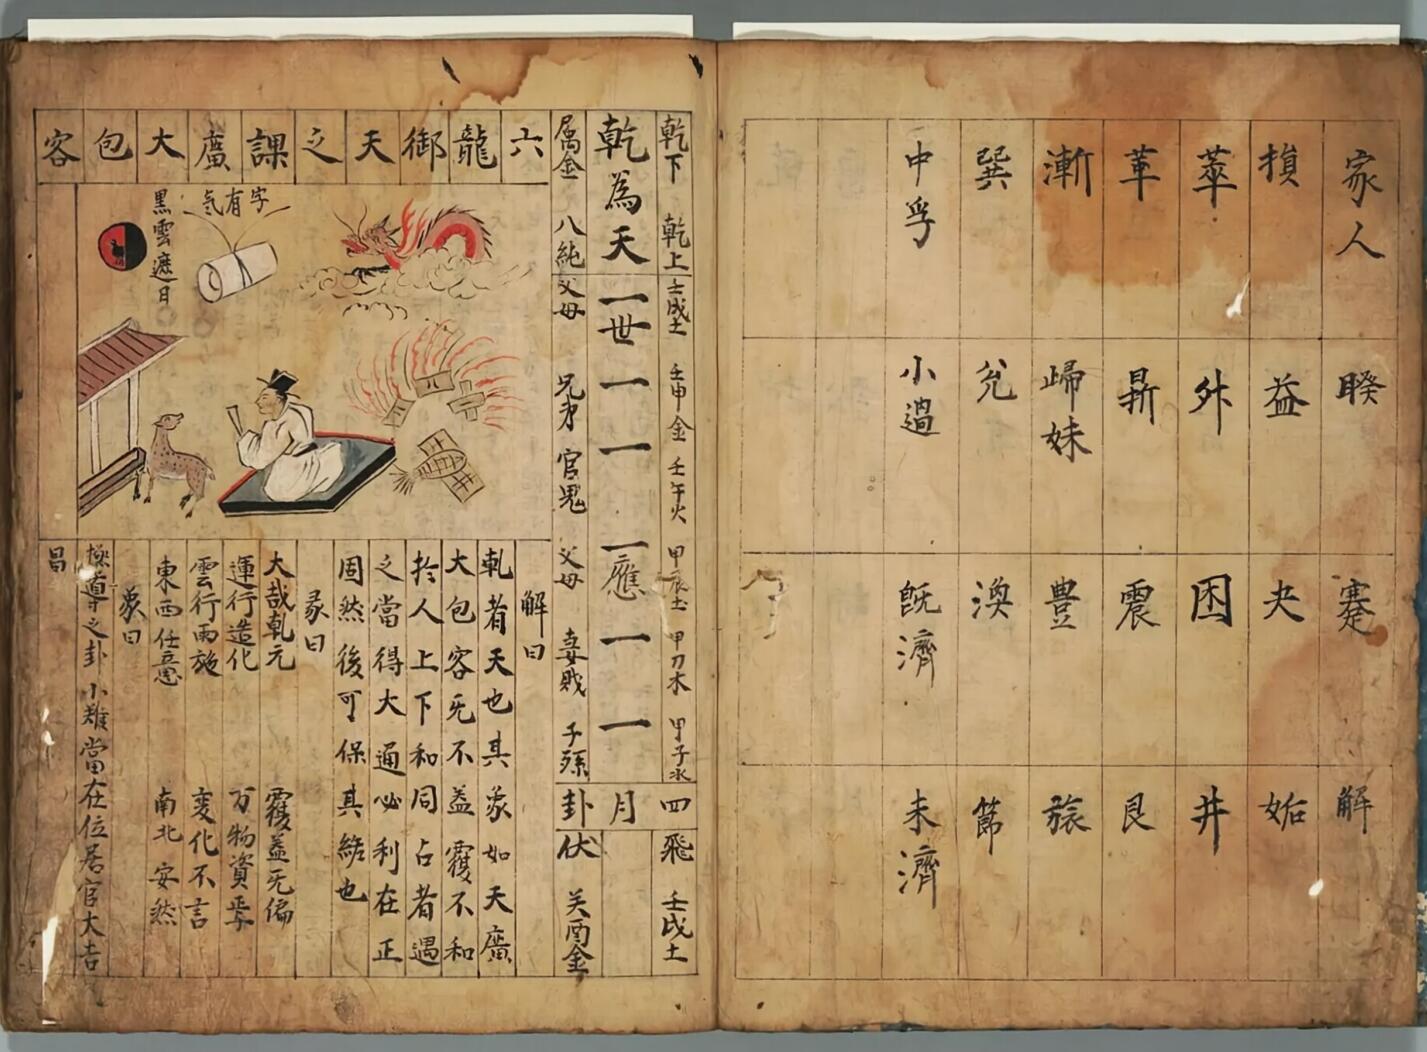 家人 睽 蹇 解
損 益 夬 姤
萃 升 困 井
革 鼎 震 艮
漸 歸妹 豊 旅
巽 兊 渙 節
中孚 小過 既濟 未濟
乾下 乾上 壬戌土 壬申金 壬午火 甲辰土 甲刀木 甲子水
乾為天 世 應
属金 八純 父母 兄弟 官鬼 父母 妻財 子孫
四月卦
飛 壬戌土
伏 癸酉金
六龍御天之課廣大包容
字有気
黒雲遮日
解曰
乹者天也其象如天廣
大包容旡不盖覆不和
扵人上下和同占者遇
之當得大通必利在正
固然後可保其終也
彖曰
大哉乹元 覆盖旡偏
運行造化 万物資
雲行雨施 変化不言
東西任意 南北安然
象曰
之卦小難當在位居官大吉
昌